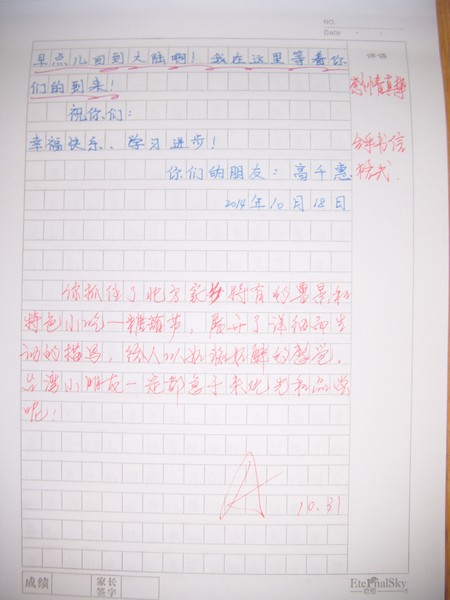 NO.
Date
评语
早点儿回到大陆啊！我在这里等着你
们的到来！
祝你们：
幸福快乐、学习进步！
你们的朋友：高千惠
2014年10月18日
感情真挚
合乎书信
格式.
你抓住了北方家乡特有的雪景和
特色小吃—糖葫芦，展开了详细而生
动的描写，给人以
的感觉。
台湾小朋友一定都急于来此光和品尝
呢！
A
10.31
成绩
家长
签字
EternalSky
欣恒